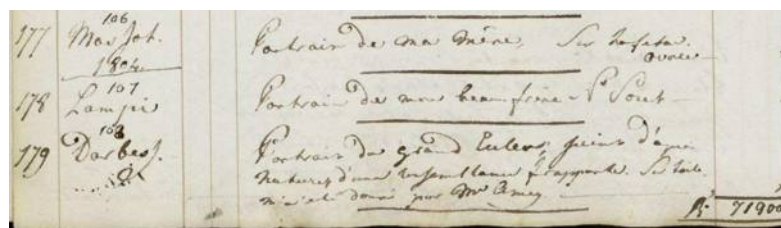 106
177 Mosjoh. Portrait de ma Mère, Sur taffetas.
ovale
1804.
107
178 Lampi Portrait de mon beau frère
108
179 Darbes. Portrait du grand Euler, peint d'après
Nature d'une ressemblance frappante. Sur toile.
m'a été donné par Mr
71900